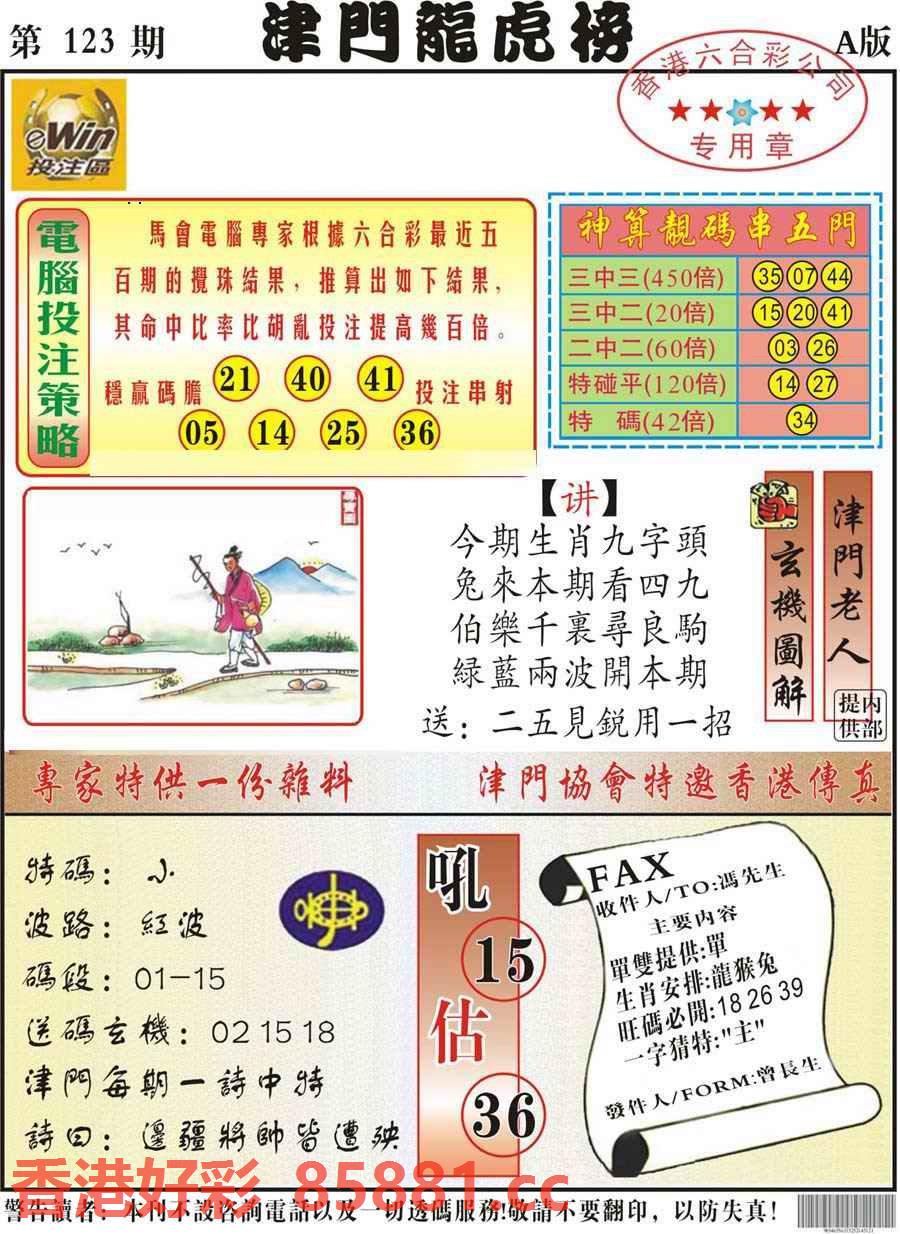 第 123 期
津門龍虎榜
A版
香港六合彩公司
专用章
eWin
投注區
電腦投注策略
馬會電腦專家根據六合彩最近五
百期的攪珠結果，推算出如下結果，
其命中比率比胡亂投注提高幾百倍。
穩贏碼膽 21 40 41 投注串射
05 14 25 36
神算靚碼串五門
三中三(450倍) 35 07 44
三中二(20倍) 15 20 41
二中二(60倍) 03 26
特碰平(120倍) 14 27
特 碼(42倍) 34
【讲】
今期生肖九字頭
兔來本期看四九
伯樂千裏尋良駒
緑藍兩波開本期
送：二五見鋭用一招
玄機圖解
津門老人
内部提供
專家特供一份雜料
津門協會特邀香港傳真
特碼：小
波路：紅波
碼段：01-15
送碼玄機：02 15 18
津門每期一詩中特
詩曰：邊疆將帥皆遭殃
吼
15
估
36
FAX
收件人/TO:馮先生
主要内容
單雙提供:單
生肖安排:龍猴兔
旺碼必開:18 26 39
一字猜特:"主"
發件人/FORM:曾長生
香港好彩 85881.cc
警告讀者：本刊不設咨詢電話以及一切透碼服務!敬請不要翻印，以防失真!